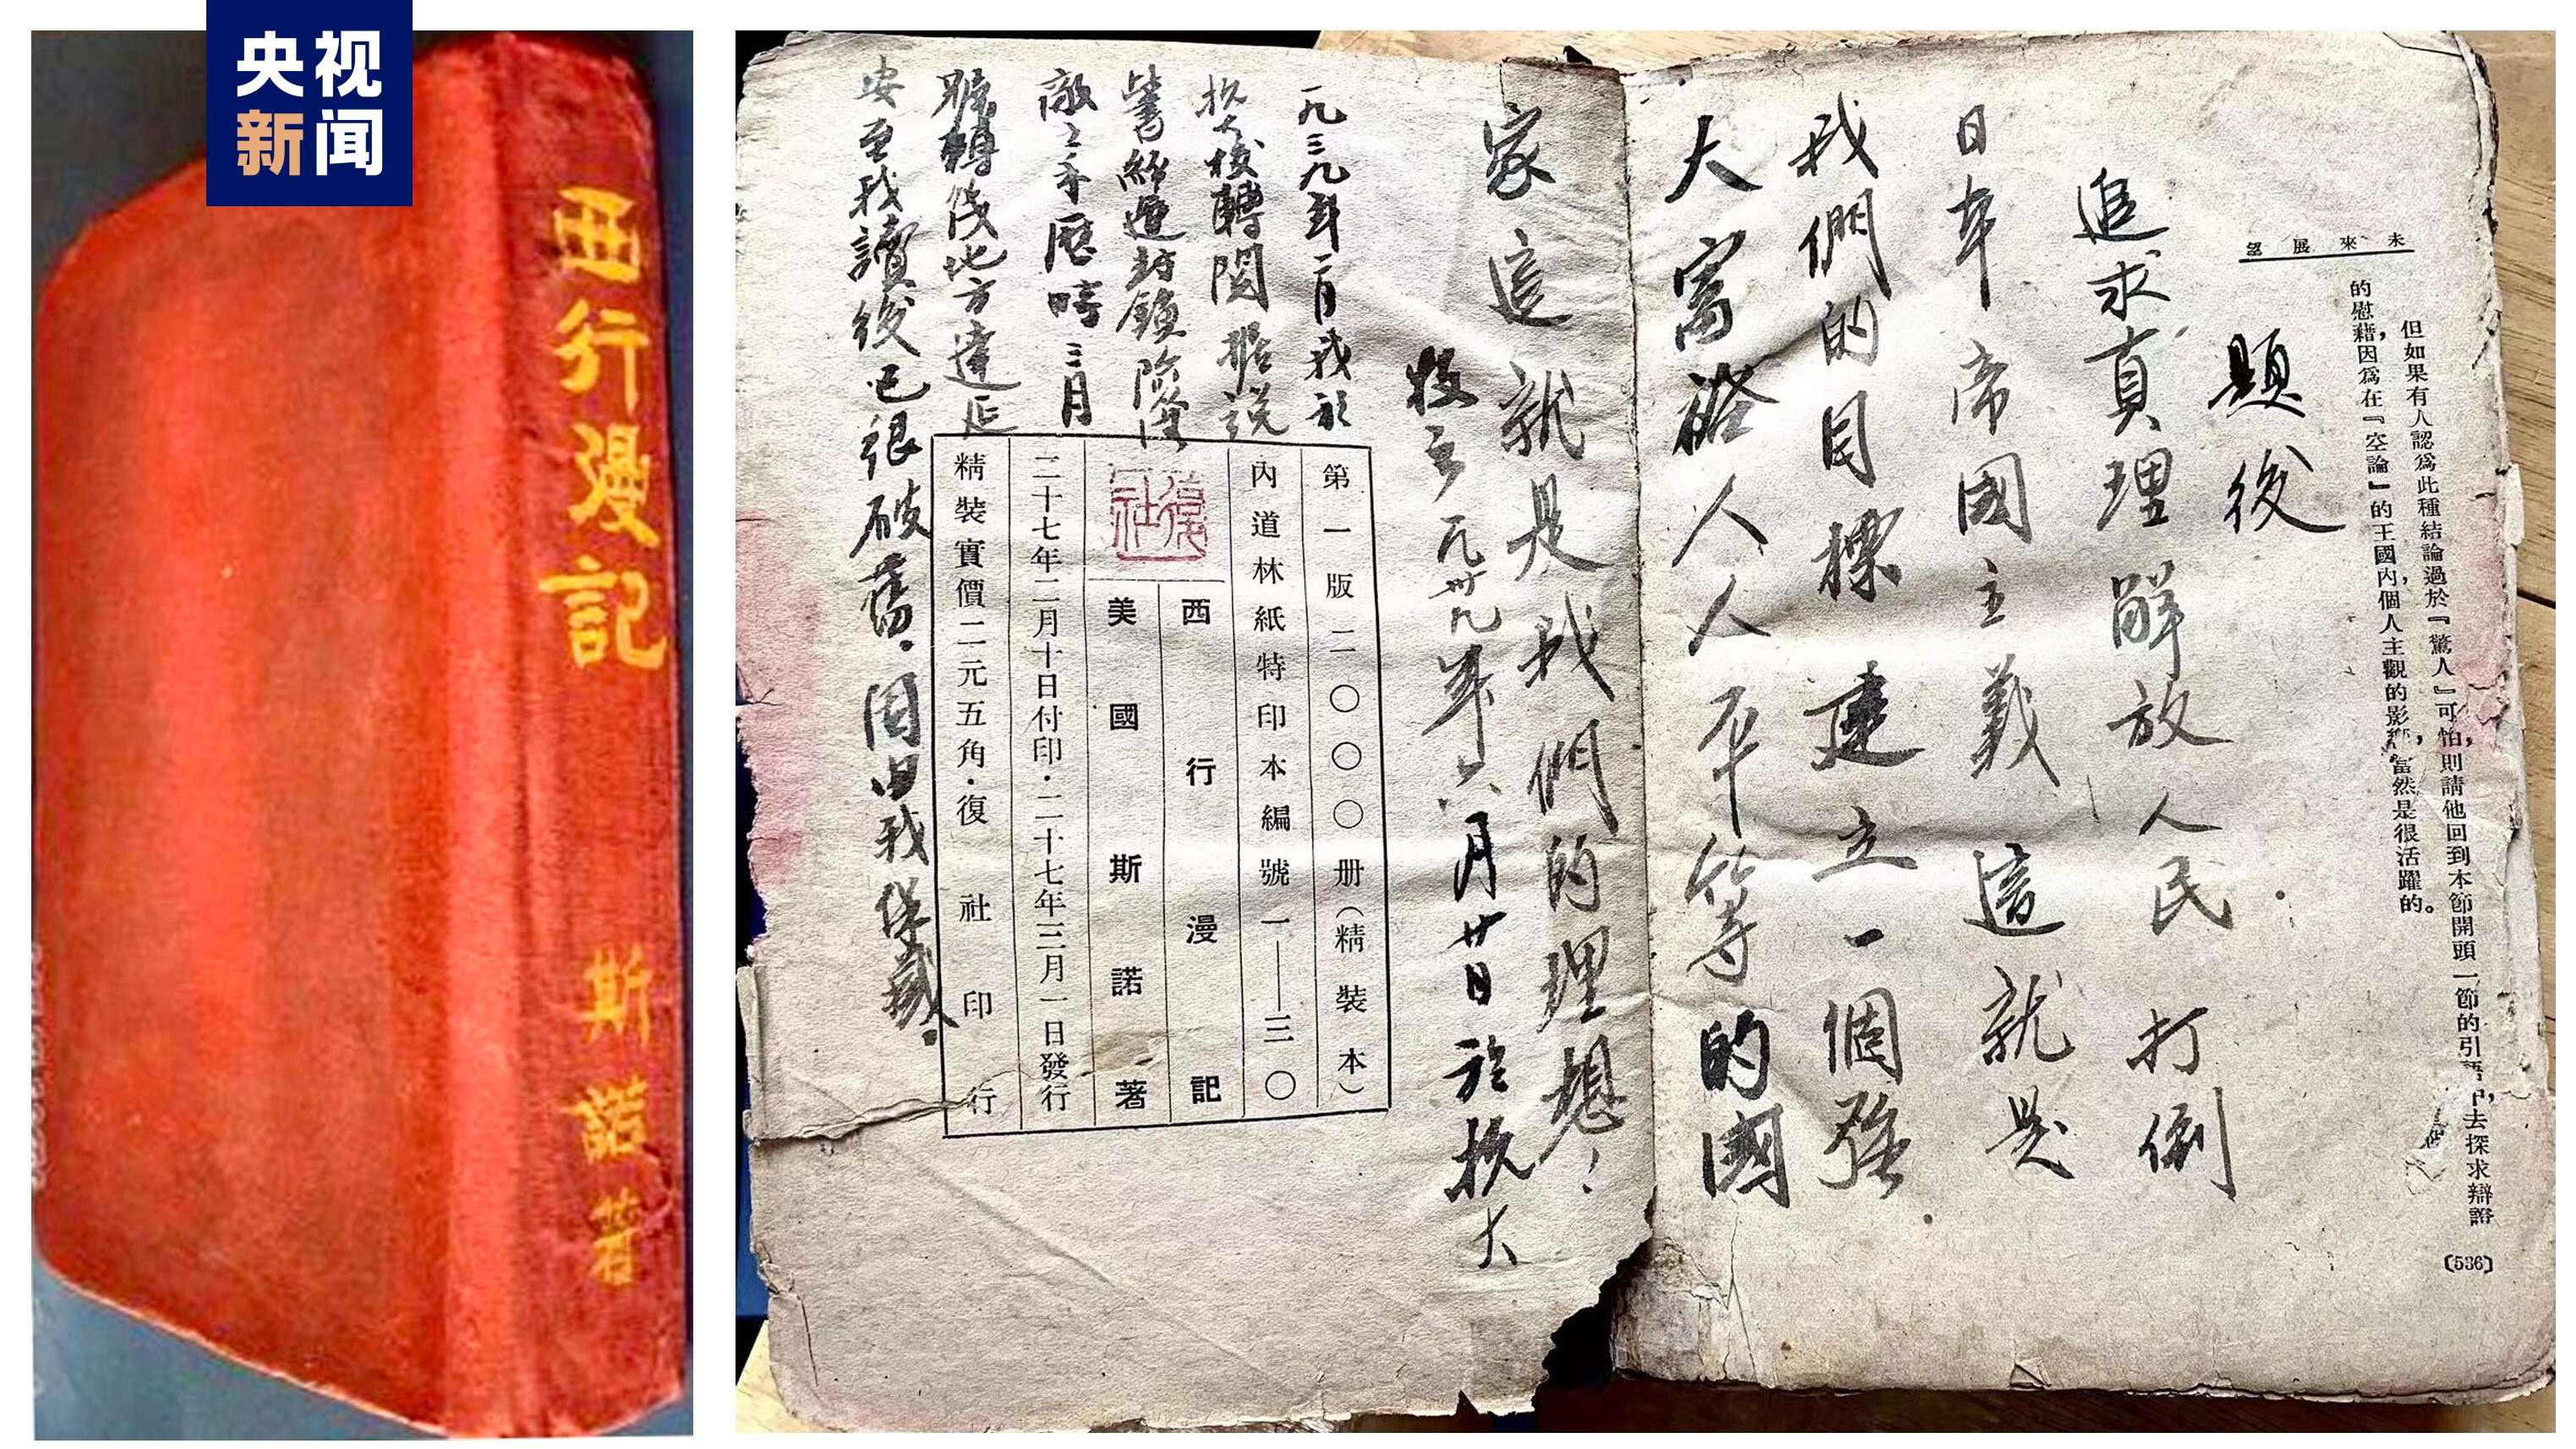 央视
新闻
西行漫記 斯諾著
未來展望
但如果有人認爲此種結論過於『驚人』可怕,則請他回到本節開頭一節的引語中,去探求辯證
的慰藉,因爲在『空論』的王國內,個人主觀的影響,當然是很活躍的。
(536)
題後
追求真理解放人民打倒
日本帝國主義這就是
我們的目標建立一個強
大富裕人人平等的國
家這就是我們的理想!
牧云一九卅九年六月廿日於抗大
一九三九年二月我於
抗大校轉閱據说
此書經過封鎖險落
敵之手歷時三月
轉後地方達延
安至我讀後已很破舊.因由我保藏.
第一版二〇〇〇册(精裝本)
內道林紙特印本編號一——三〇
西行漫記
復社
美國斯諾著
二十七年二月十日付印·二十七年三月一日發行
精裝實價二元五角·復社印行